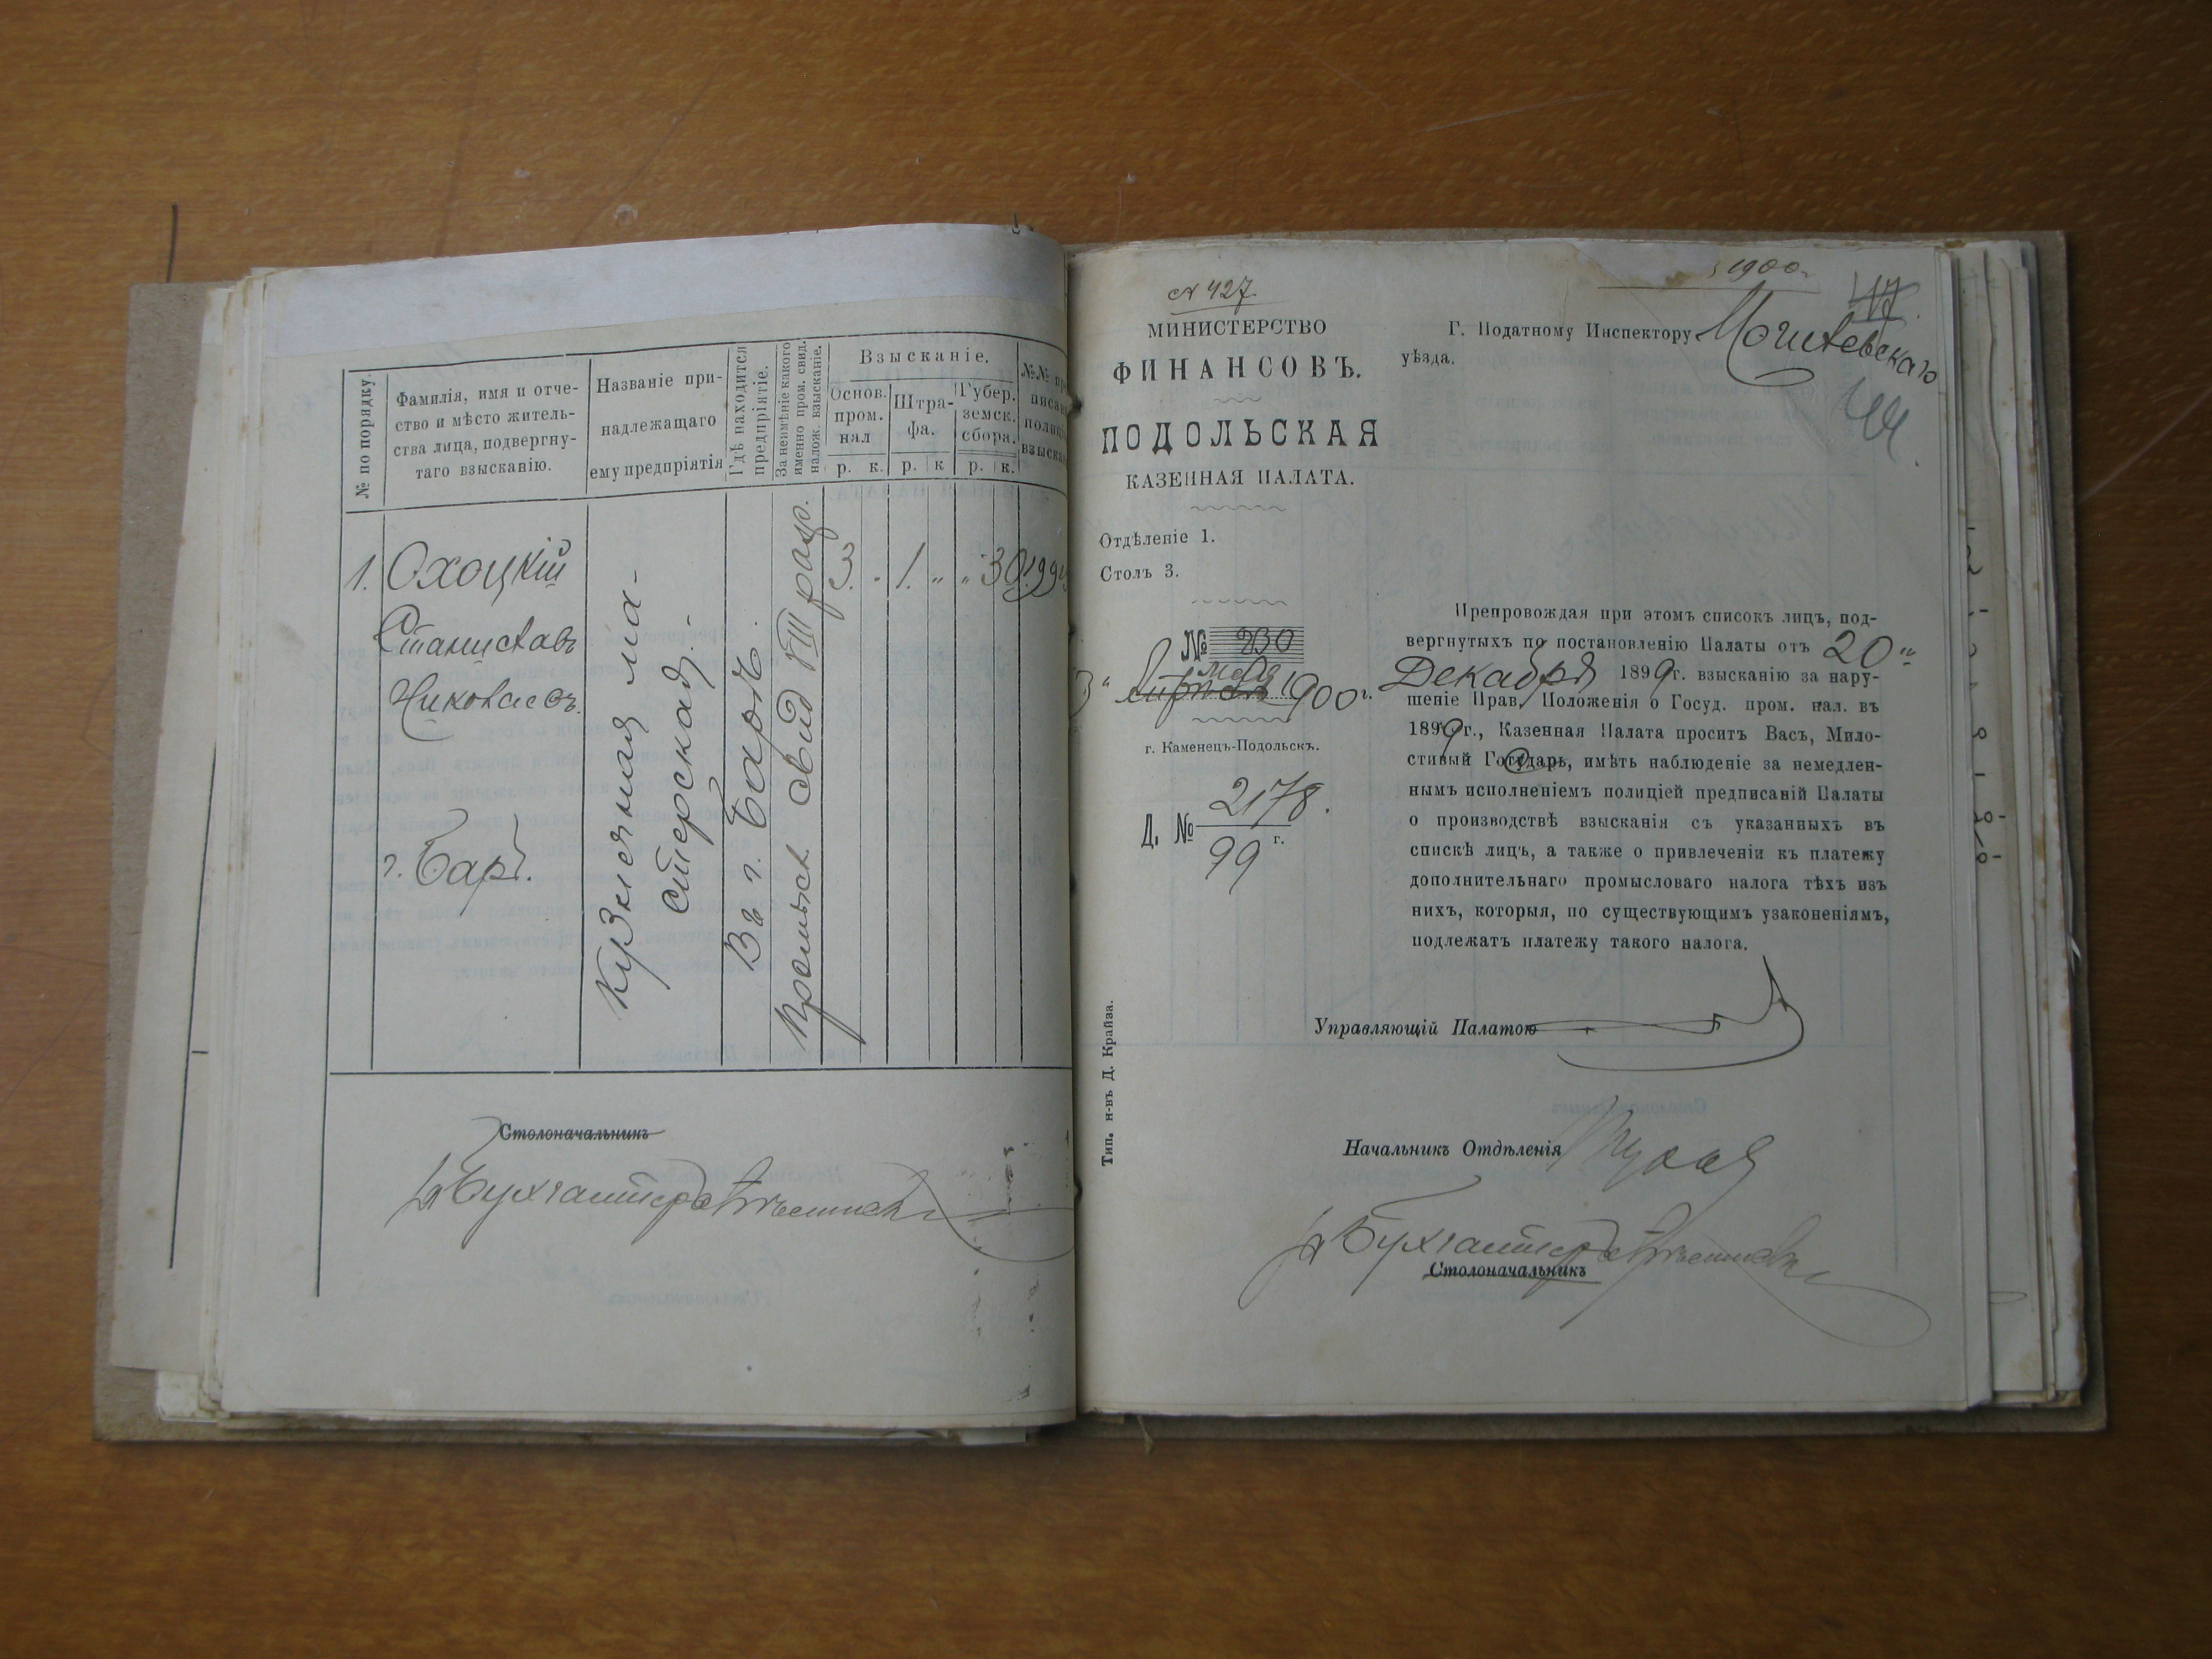 № по порядку.
Фамилія, имя и отче-
ство и мѣсто житель-
ства лица, подвергну-
таго взысканію.
Названіе при-
надлежащаго
ему предпріятія
Гдѣ находится
предпріятіе.
За неимѣніе какого
именно пром. свид.
налож. взысканіе.
Взысканіе.
Основ.
пром.
нал
р. к.
Штра-
фа.
р. к
Губер.
земск.
сбора.
р. к.
№№
полиц
взыска
1. Охоцкій
Станиславъ
Николаевъ.
г. Баръ.
Кузнечная ма-
стерская.
Въ г. Барѣ.
Промысл. свид. VIII разр.
3. „ 1. „ „ 30
Столоначальникъ
Бухгалтеръ
№ 427.
МИНИСТЕРСТВО
ФИНАНСОВЪ.
ПОДОЛЬСКАЯ
КАЗЕННАЯ ПАЛАТА.
Отдѣленіе 1.
Столъ 3.
№ 230
мая
3 „ Апрѣля 1900 г.
г. Каменецъ-Подольскъ.
Д. № 2178.
99 г.
Тип. н-въ Д. Крайза.
1900
117.
Г. Податному Инспектору Могилевскаго
уѣзда.
Препровождая при этомъ списокъ лицъ, под-
вергнутыхъ по постановленію Палаты отъ 20 „
Декабря 1899 г. взысканію за нару-
шеніе Прав. Положенія о Госуд. пром. нал. въ
1899 г., Казенная Палата проситъ Васъ, Мило-
стивый Государь, имѣть наблюденіе за немедлен-
нымъ исполненіемъ полиціей предписаній Палаты
о производствѣ взысканія съ указанныхъ въ
спискѣ лицъ, а также о привлеченіи къ платежу
дополнительнаго промысловаго налога тѣхъ изъ
нихъ, которыя, по существующимъ узаконеніямъ,
подлежатъ платежу такого налога.
Управляющій Палатою
Начальникъ Отдѣленія
Бухгалтеръ
Столоначальникъ